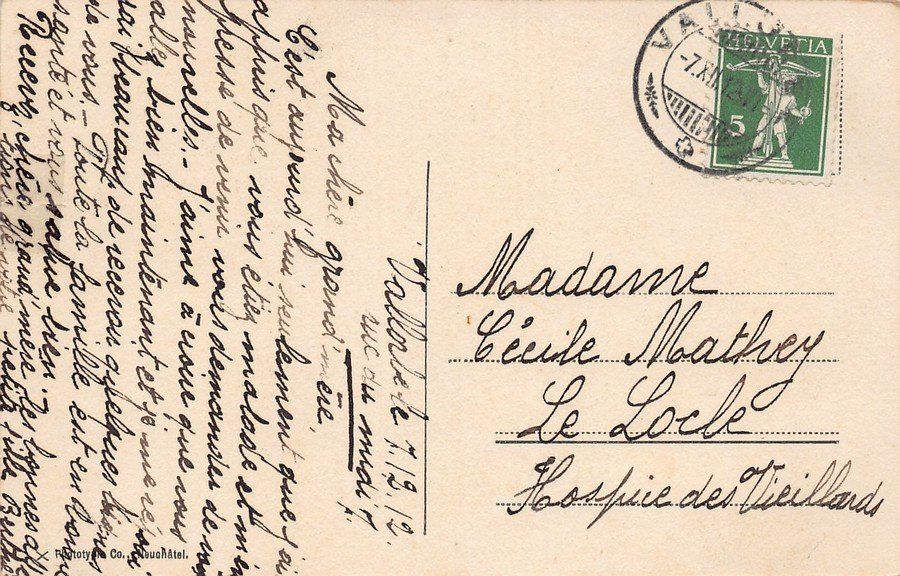 Vallorbe 7.12.12.
rue du midi 7.
Ma chère grand'mère,
C'est aujourd'hui seulement que j'ai
appris que vous étiez malade et m'em
presse de venir vous demander de vos
nouvelles. – J'aime à croire que vous
allez bien maintenant et je me réjoui
rai beaucoup de recevoir quelques lignes
de vous. – Toute la famille est en bonne
santé et vous salue bien. –
Recevez, chère grand'mère les bonnes
de votre petite fille Berthe
VALLORBE
-7.XII.12.
HELVETIA
5
Madame
Cécile Mathey
Le Locle
Hospice des Vieillards
Phototypie Co., Neuchâtel.